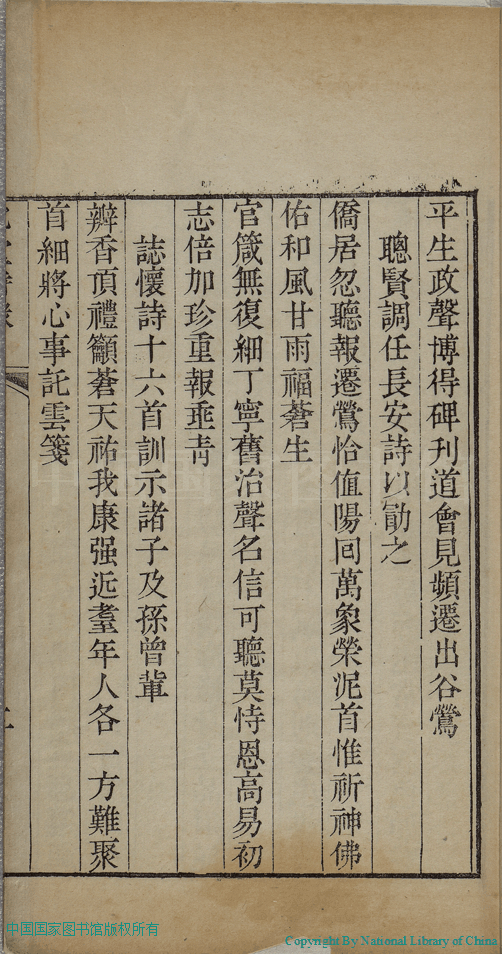 平生政聲博得碑刊道會見頻遷出谷鶯
聰賢調任長安詩以勖之
僑居忽聽報遷鶯恰值陽回萬象榮泥首惟祈神佛
佑和風甘雨福蒼生
官箴無復細丁寧舊治聲名信可聽莫恃恩高易初
志倍加珍重報亟青
誌懷詩十六首訓示諸子及孫曾輩
辦香頂禮籲蒼天祐我康强近耋年人各一方難聚
首細將心事託雲箋
中国国家图书馆版权所有
Copyright By National Library of China